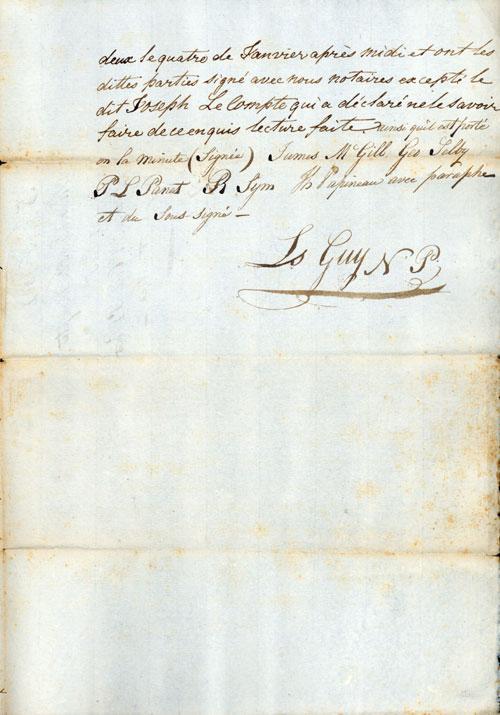 deux le quatre de Janvier après midi et ont les
dittes parties signé avec nous notaires excepté le
dit Joseph Le Compte qui a déclaré ne le savoir
faire de ce enquis lecture faite ainsi qu'il est porté
en la minute (Signée) James McGill Geo Selby
P L Panet R Sym Jh Papineau avec paraphe
et du Sous signé —
Ls Guy N P.